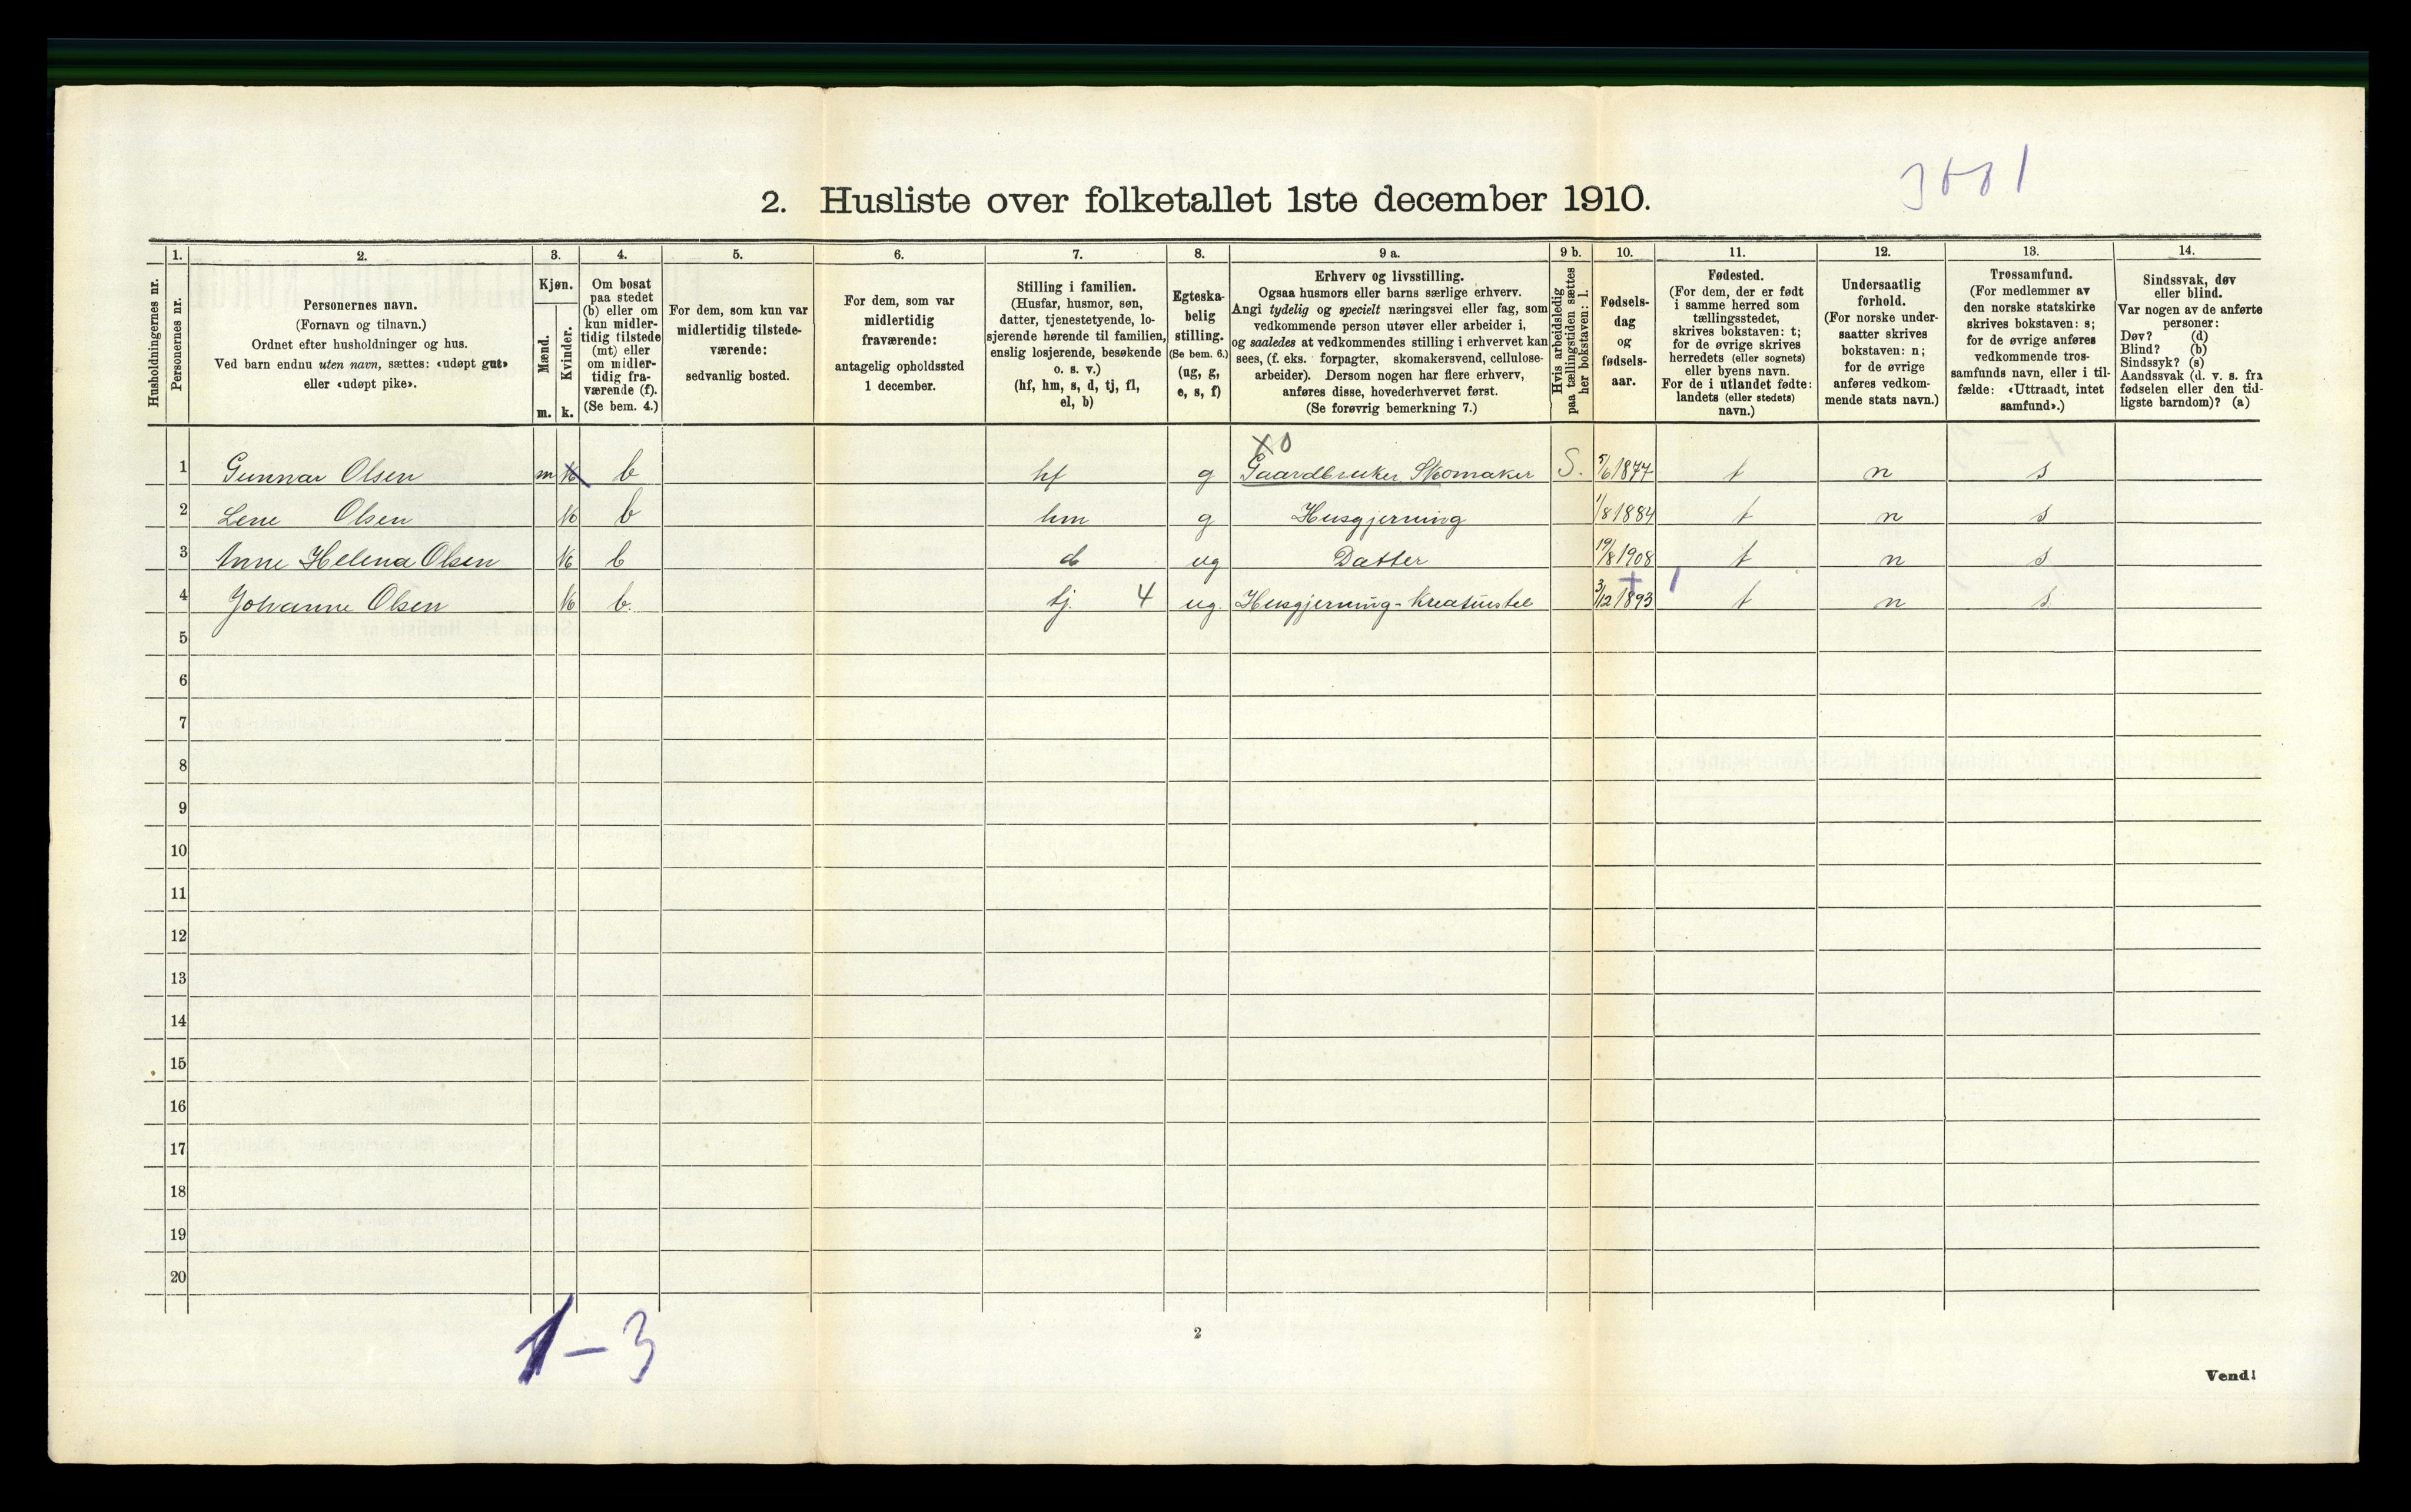 2. Husliste over folketallet 1ste december 1910.
Husholdningernes nr.
1.
Personernes nr.
2.
Personernes navn.
(Fornavn og tilnavn.)
Ordnet efter husholdninger og hus.
Ved barn endnu uten navn, sættes: «udøpt gut»
eller «udøpt pike».
3.
Kjøn.
Mænd.
m.
Kvinder.
k.
4.
Om bosat
paa stedet
(b) eller om
kun midler-
tidig tilstede
(mt) eller
om midler-
tidig fra-
værende (f).
(Se bem. 4.)
5.
For dem, som kun var
midlertidig tilstede-
værende:
sedvanlig bosted.
6.
For dem, som var
midlertidig
fraværende:
antagelig opholdssted
1 december.
7.
Stilling i familien.
(Husfar, husmor, søn,
datter, tjenestetyende, lo-
sjerende hørende til familien,
enslig losjerende, besøkende
o. s. v.)
(hf, hm, s, d, tj, fl,
el, b)
8.
Egteska-
belig
stilling.
(Se bem. 6.)
(ug, g,
e, s, f)
9 a.
Erhverv og livsstilling.
Ogsaa husmors eller barns særlige erhverv.
Angi tydelig og specielt næringsvei eller fag, som
vedkommende person utøver eller arbeider i,
og saaledes at vedkommendes stilling i erhvervet kan
sees, (f. eks. forpagter, skomakersvend, cellulose-
arbeider). Dersom nogen har flere erhverv,
anføres disse, hovederhvervet først.
(Se forøvrig bemerkning 7.)
9 b.
Hvis arbeidsledig
paa tællingstiden sættes
her bokstaven: l.
10.
Fødsels-
dag
og
fødsels-
aar.
11.
Fødested.
(For dem, der er født
i samme herred som
tællingsstedet,
skrives bokstaven: t;
for de øvrige skrives
herredets (eller sognets)
eller byens navn.
For de i utlandet fødte:
landets (eller stedets)
navn.)
12.
Undersaatlig
forhold.
(For norske under-
saatter skrives
bokstaven: n;
for de øvrige
anføres vedkom-
mende stats navn.)
13.
Trossamfund.
(For medlemmer av
den norske statskirke
skrives bokstaven: s;
for de øvrige anføres
vedkommende tros-
samfunds navn, eller i til-
fælde: «Uttraadt, intet
samfund».)
14.
Sindssvak, døv
eller blind.
Var nogen av de anførte
personer:
Døv? (d)
Blind? (b)
Sindssyk? (s)
Aandssvak (d. v. s. fra
fødselen eller den tid-
ligste barndom)? (a)
X0
1 Gunnar Olsen m k b hf g Gaardbruker Skomaker S. 5/6 1877 t n s
2 Lene Olsen k b hm g Husgjerning 1/8 1884 t n s
3 Anne Helena Olsen k b d ug Datter 19/8 1908 t n s
4 Johanne Olsen k b. tj. 4 ug. Husgjerning - Kreaturstel 3/12 1893 t n s.
5
6
7
8
9
10
11
12
13
14
15
16
17
18
19
20
1-3
2
Vend!